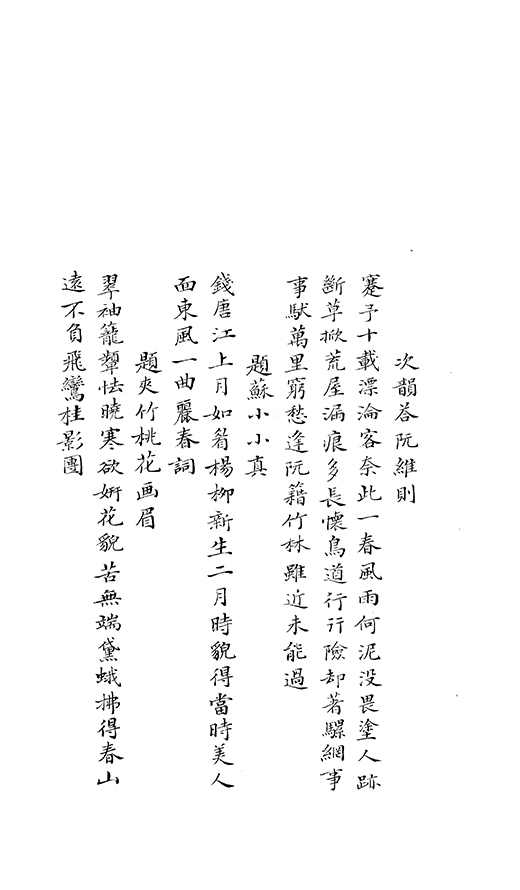 次韻答阮維則
蹇予十載漂淪客奈此一春風雨何泥没畏塗人跡
斷草掀荒屋漏痕多長懷鳥道行行險却著騾網事
事馱萬里窮愁逢阮籍竹林雖近未能過
題蘇小小真
錢唐江上月如眉楊柳新生二月時貌得當時美人
面東風一曲麗春詞
題夾竹桃花画眉
翠袖籠顰怯曉寒欲妍花貌苦無端黛蛾拂得春山
遠不負飛鸞桂影團